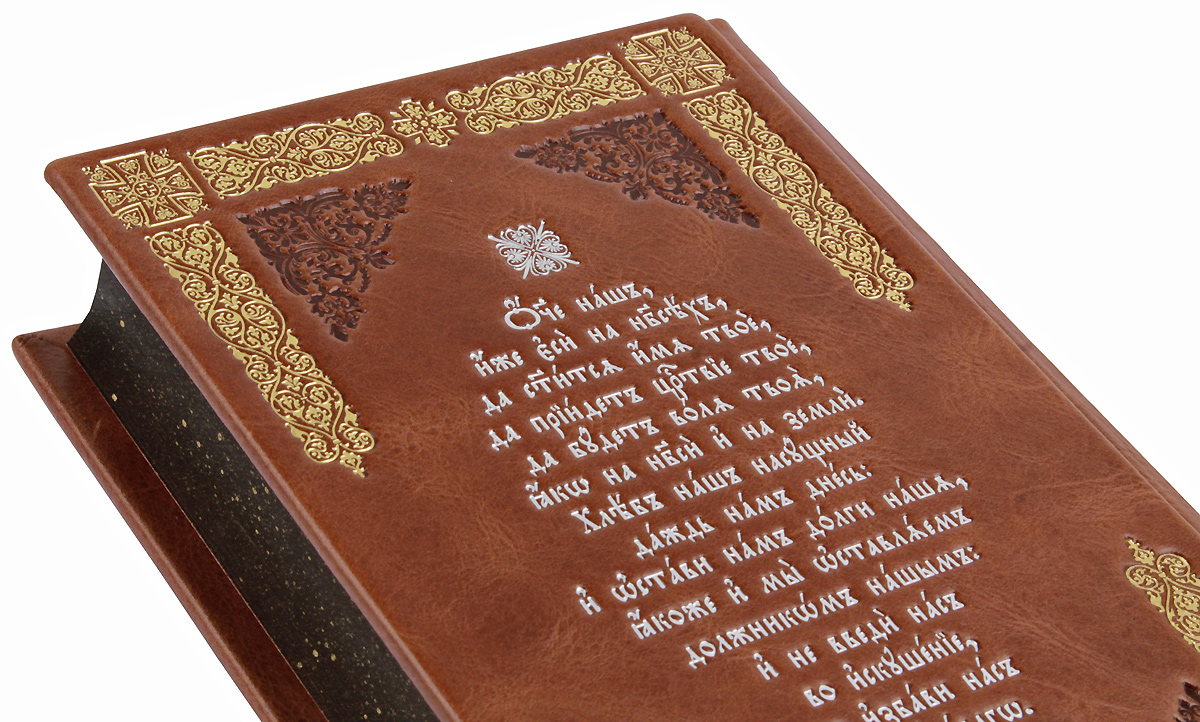 Ѻ҆́ч҃е на́шъ,
и҆́же є҆сѝ на нб҃сѣ́хъ,
да ст҃и́тсѧ и҆́мѧ твоѐ,
да прїи́детъ цр҃твїе твоѐ,
да бꙋ́детъ во́лѧ твоѧ̀,
ꙗ҆́кѡ на нб҃сѝ и҆ на землѝ.
Хлѣ́бъ на́шъ насꙋ́щный
да́ждь на́мъ дне́сь:
и҆ ѡ҆ста́ви на́мъ до́лги на́шѧ,
ꙗ҆́коже и҆ мы̀ ѡ҆ставлѧ́емъ
должникѡ́мъ на́шымъ:
и҆ не введѝ на́съ
во и҆скꙋше́нїе,
и҆зба́ви на́съ